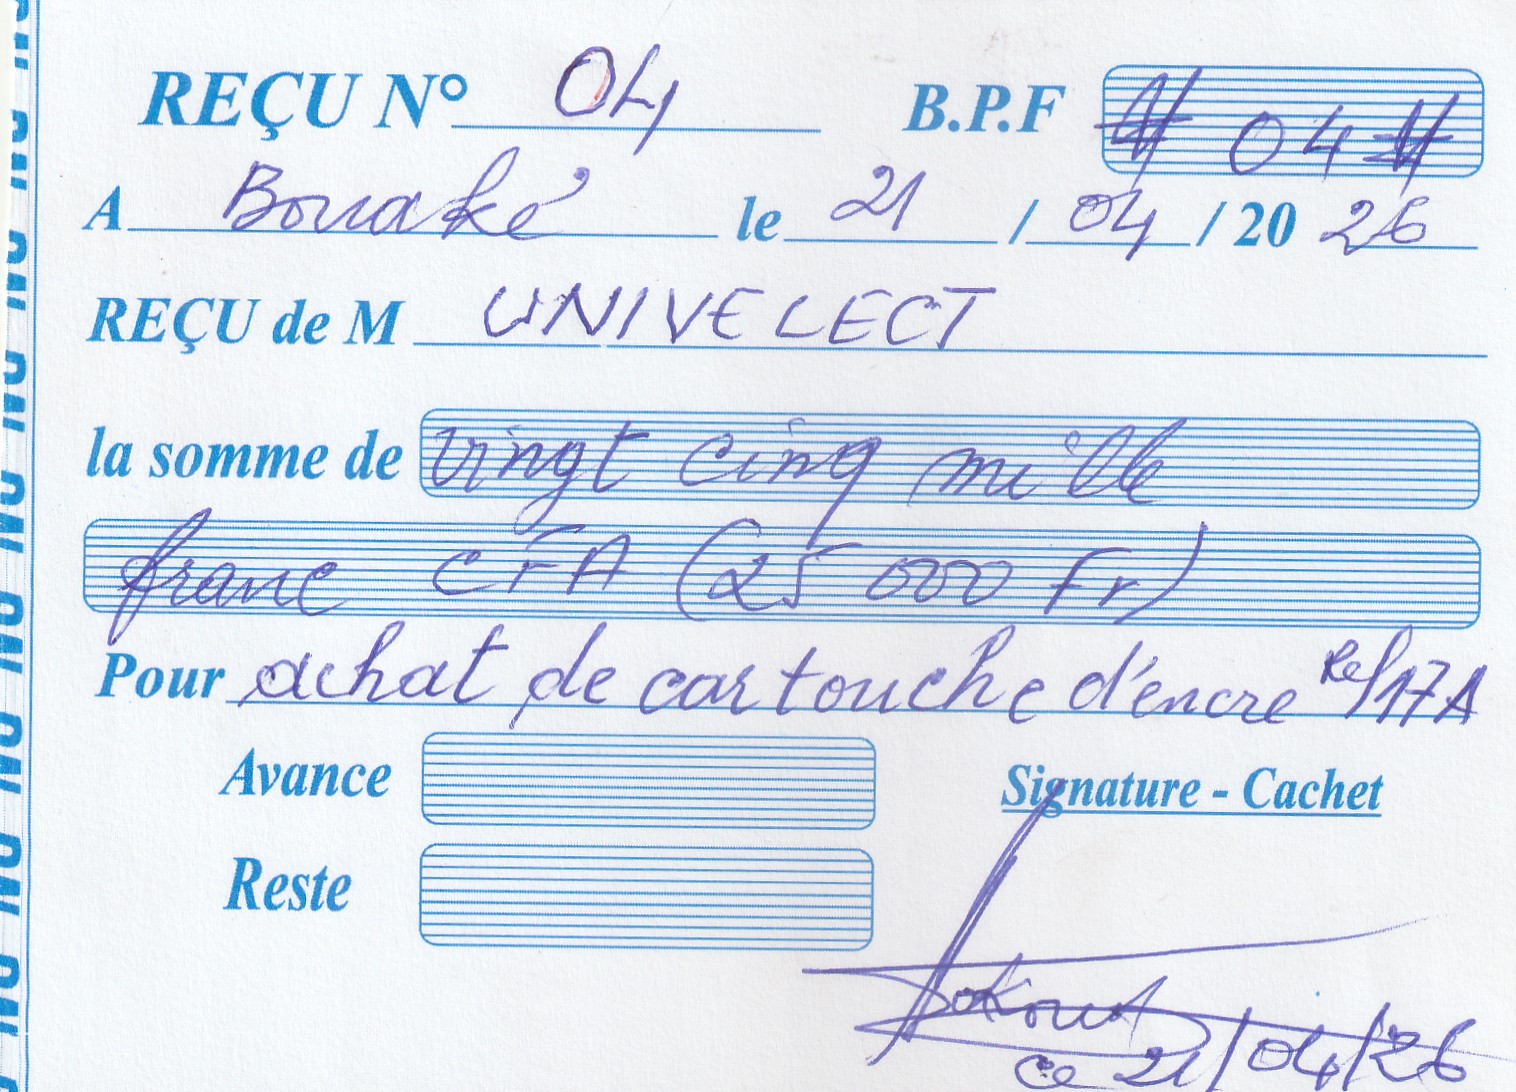 REÇU N° 04 B.P.F # 04 #
A Bouaké le 21 / 04 / 20 26
REÇU de M UNIVELECT
la somme de vingt cinq mille
franc CFA (25 000 Fr)
Pour achat de cartouche d'encre Ref 17A
Avance
Signature - Cachet
Reste
ce 21/04/26